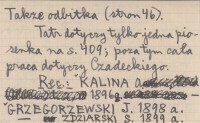 Także odbitka (stron 46).
Tatr dotyczy tylko jedna pio-
senka na s. 409; poza tym cała
praca dotyczy Czadeckiego.
Rec.: KALINA A.
1896 g.
GRZEGORZEWSKI J. 1898 a.
ZDZIARSKI S. 1899 a.